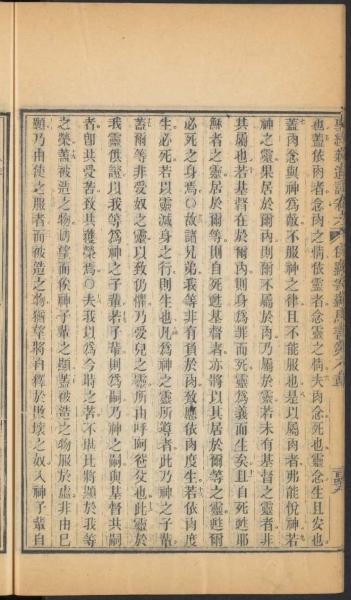 也蓋依肉者念肉之情依靈者念靈之情夫肉念死也靈念生且安也
蓋肉念與神爲敵不服神之律且不能服也是以屬肉者弗能悅神若
神之靈果居於爾內則爾不屬於肉乃屬於靈若未有基督之靈者非
其屬也若基督在於爾內則身爲罪而死靈爲義而生矣且自死甦耶
穌者之靈居於爾等則自死甦基督者亦將以其居於爾等之靈甦爾
必死之身焉○故諸兄弟我等非有負於肉致應依肉度生蓋若依肉度
生必死若以靈滅身之行則生也凡爲神之靈所導者此乃神之子輩
蓋爾等非受奴之靈以致仍懼乃受兒之靈所由呼阿爸父也此靈於
我靈俱證以我等爲神之子輩若子輩則爲嗣乃神之嗣與基督共嗣
者卽共受苦致共獲榮焉○夫我以爲今時之苦不堪比將顯於我等
之榮蓋被造之物切望而俟神子輩之顯蓋被造之物服於虛非由己
願乃由使之服者而被造之物猶望將自釋於敗壞之奴入神子輩自